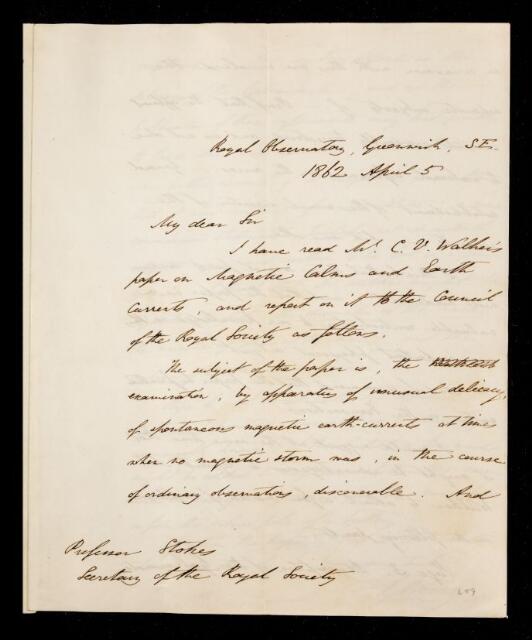 Royal Observatory, Greenwich, S.E.
1862 April 5
My dear Sir
I have read Mr. C. V. Walker's
paper on Magnetic Calms and Earth
Currents, and report on it to the Council
of the Royal Society as follows.
The subject of the paper is, the
examination, by apparatus of unusual delicacy,
of spontaneous magnetic earth-currents at times
when no magnetic storm was, in the course
of ordinary observations, discoverable. And
Professor Stokes
Secretary of the Royal Society